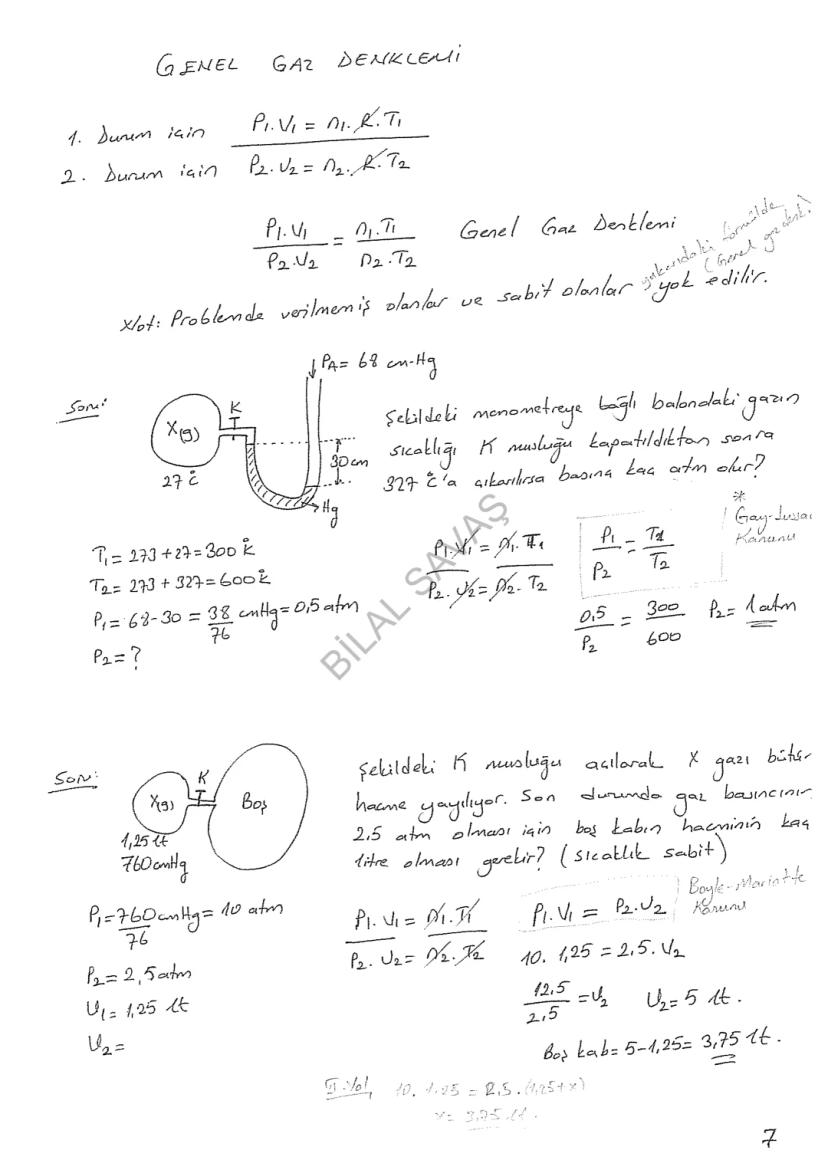 GENEL GAZ DENKLEMİ
1. Durum için P₁.V₁ = n₁.R.T₁
2. Durum için P₂.V₂ = n₂.R.T₂
P₁.V₁ / P₂.V₂ = n₁.T₁ / n₂.T₂ Genel Gaz Denklemi
Not: Problemde verilmemiş olanlar ve sabit olanlar yukarıdaki formülde (Genel gaz denk.) yok edilir.
Soru:
↓PA = 68 cm-Hg
K
X(g)
27 °C
30 cm
Hg
Şekildeki manometreye bağlı balondaki gazın
sıcaklığı K musluğu kapatıldıktan sonra
327 °C'a çıkarılırsa basınç kaç atm olur?
T₁ = 273 + 27 = 300 °k
T₂ = 273 + 327 = 600 °k
P₁ = 68 - 30 = 38/76 cmHg = 0,5 atm
P₂ = ?
P₁.V₁ = n₁.T₁
P₂.V₂ = n₂.T₂
P₁/P₂ = T₁/T₂
*
Gay-Lussac
Kanunu
0,5/P₂ = 300/600 P₂ = 1 atm
BİLAL SAVAŞ
Soru:
K
X(g)
Boş
1,25 lt
760 cmHg
Şekildeki K musluğu açılarak X gazı bütün
hacme yayılıyor. Son durumda gaz basıncının
2,5 atm olması için boş kabın hacminin kaç
litre olması gerekir? (sıcaklık sabit)
P₁ = 760/76 cmHg = 10 atm
P₂ = 2,5 atm
V₁ = 1,25 lt
V₂ =
P₁.V₁ = n₁.T₁
P₂.V₂ = n₂.T₂
P₁.V₁ = P₂.V₂
Boyle-Mariotte
Kanunu
10. 1,25 = 2,5.V₂
12,5/2,5 = V₂ V₂ = 5 lt.
Boş kab = 5-1,25 = 3,75 lt.
II. Yol, 10. 1.25 = 2,5.(1,25+x)
x = 3,75 lt.
7